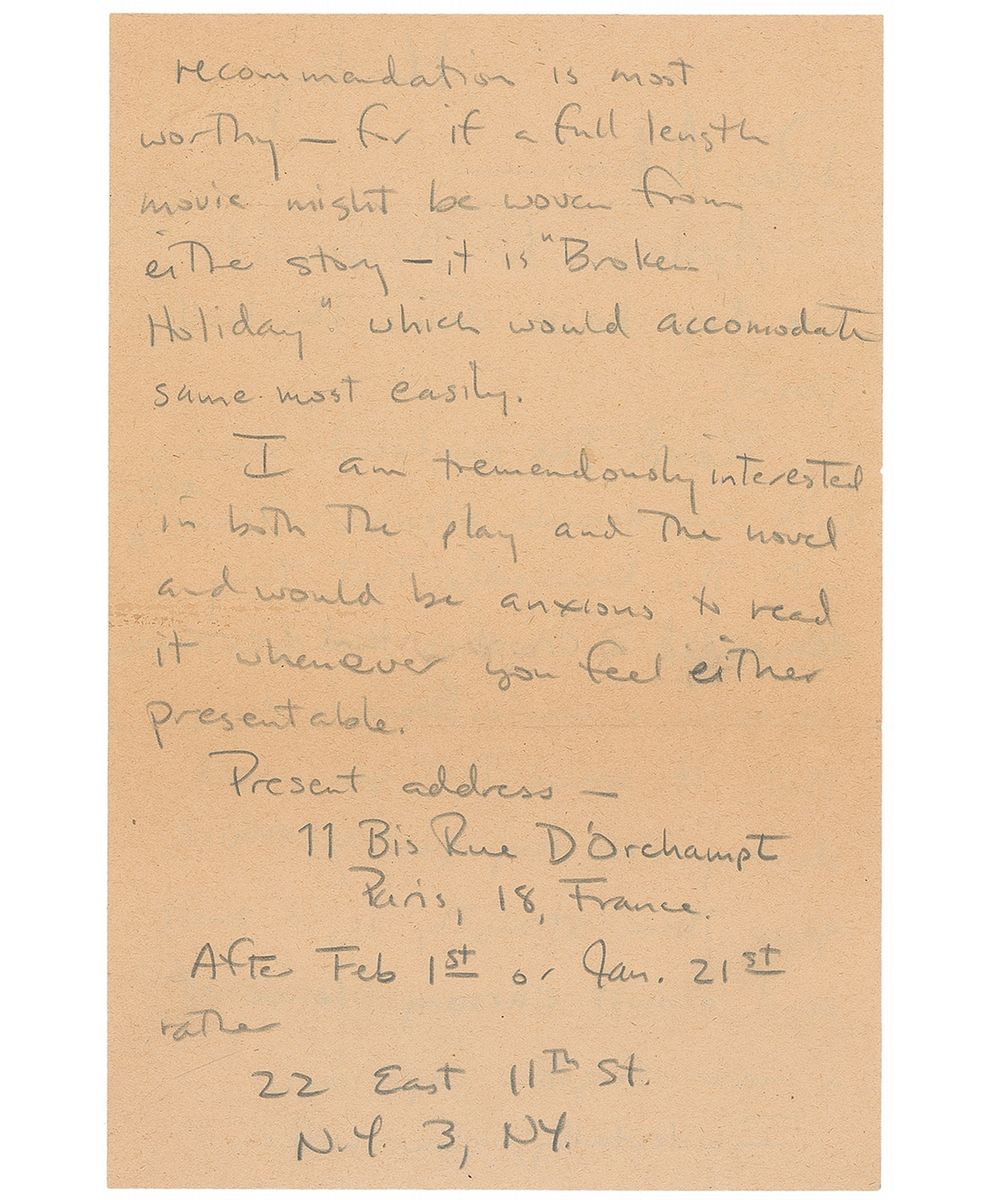 recommendation is most
worthy — for if a full length
movie might be woven from
eithe story — it is "Broken
Holiday" which would accomodate
same most easily.
I am tremendously interested
in both the play and the novel
and would be anxious to read
it whenever you feel either
presentable.
Present address —
11 Bis Rue D'Orchampt
Paris, 18, France.
After Feb 1st or Jan. 21st
rather
22 East 11th St.
N.Y. 3, NY.